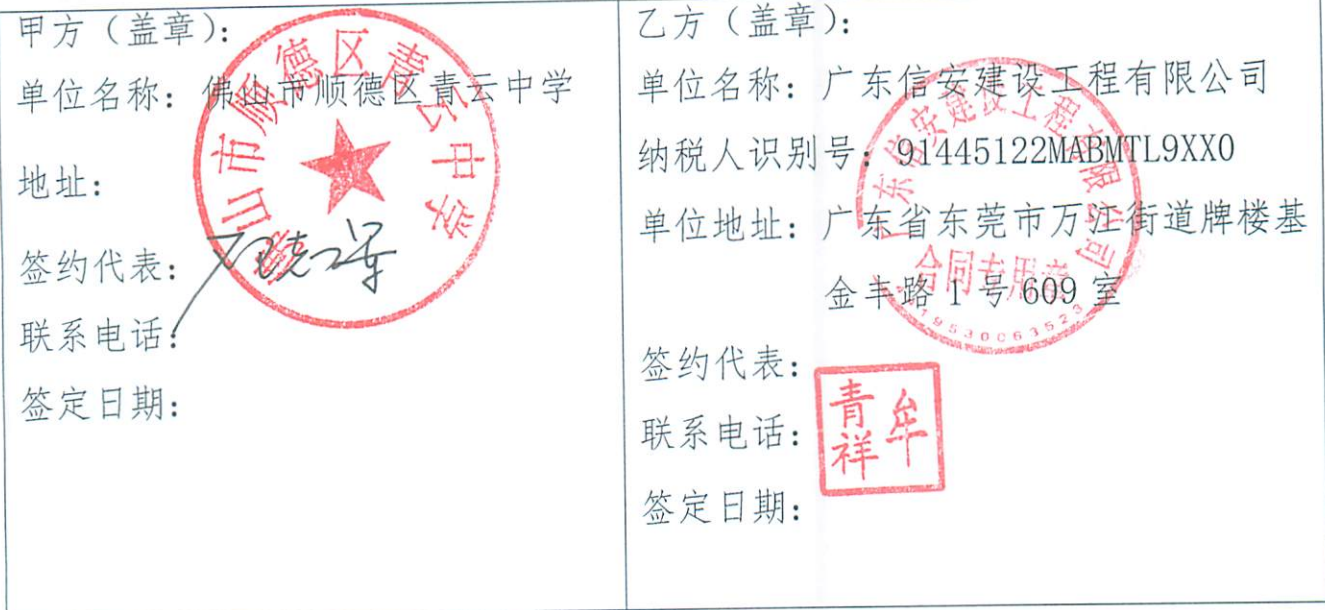 甲方（盖章）：
单位名称：佛山市顺德区青云中学
地址：
签约代表：
联系电话：
签定日期：
佛山市顺德区青云中学
乙方（盖章）：
单位名称：广东信安建设工程有限公司
纳税人识别号：91445122MABMTL9XX0
单位地址：广东省东莞市万江街道牌楼基
金丰路1号609室
签约代表：
联系电话：
签定日期：
广东信安建设工程有限公司
合同专用章
牟青祥